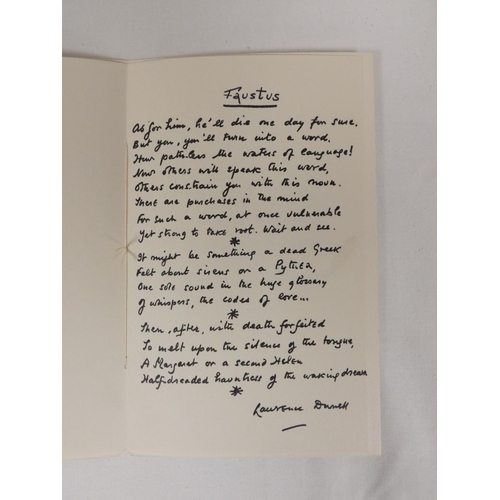 Faustus
As for him, he'll die one day for sure.
But you, you'll turn into a word.
How pathless the waters of language!
Now others will speak this word,
Others constrain you with this noun.
There are purchases in the mind
For such a word, at once vulnerable
Yet strong to take root. Wait and see.
*
It might be something a dead Greek
Felt about sirens or a Pythea,
One sole sound in the huge glossary
of whispers, the codes of love...
*
Then, after, with death forfeited
To melt upon the silence of the tongue,
A Margaret or a second Helen
Half-dreaded hauntress of the waking dream
*
Lawrence Durrell